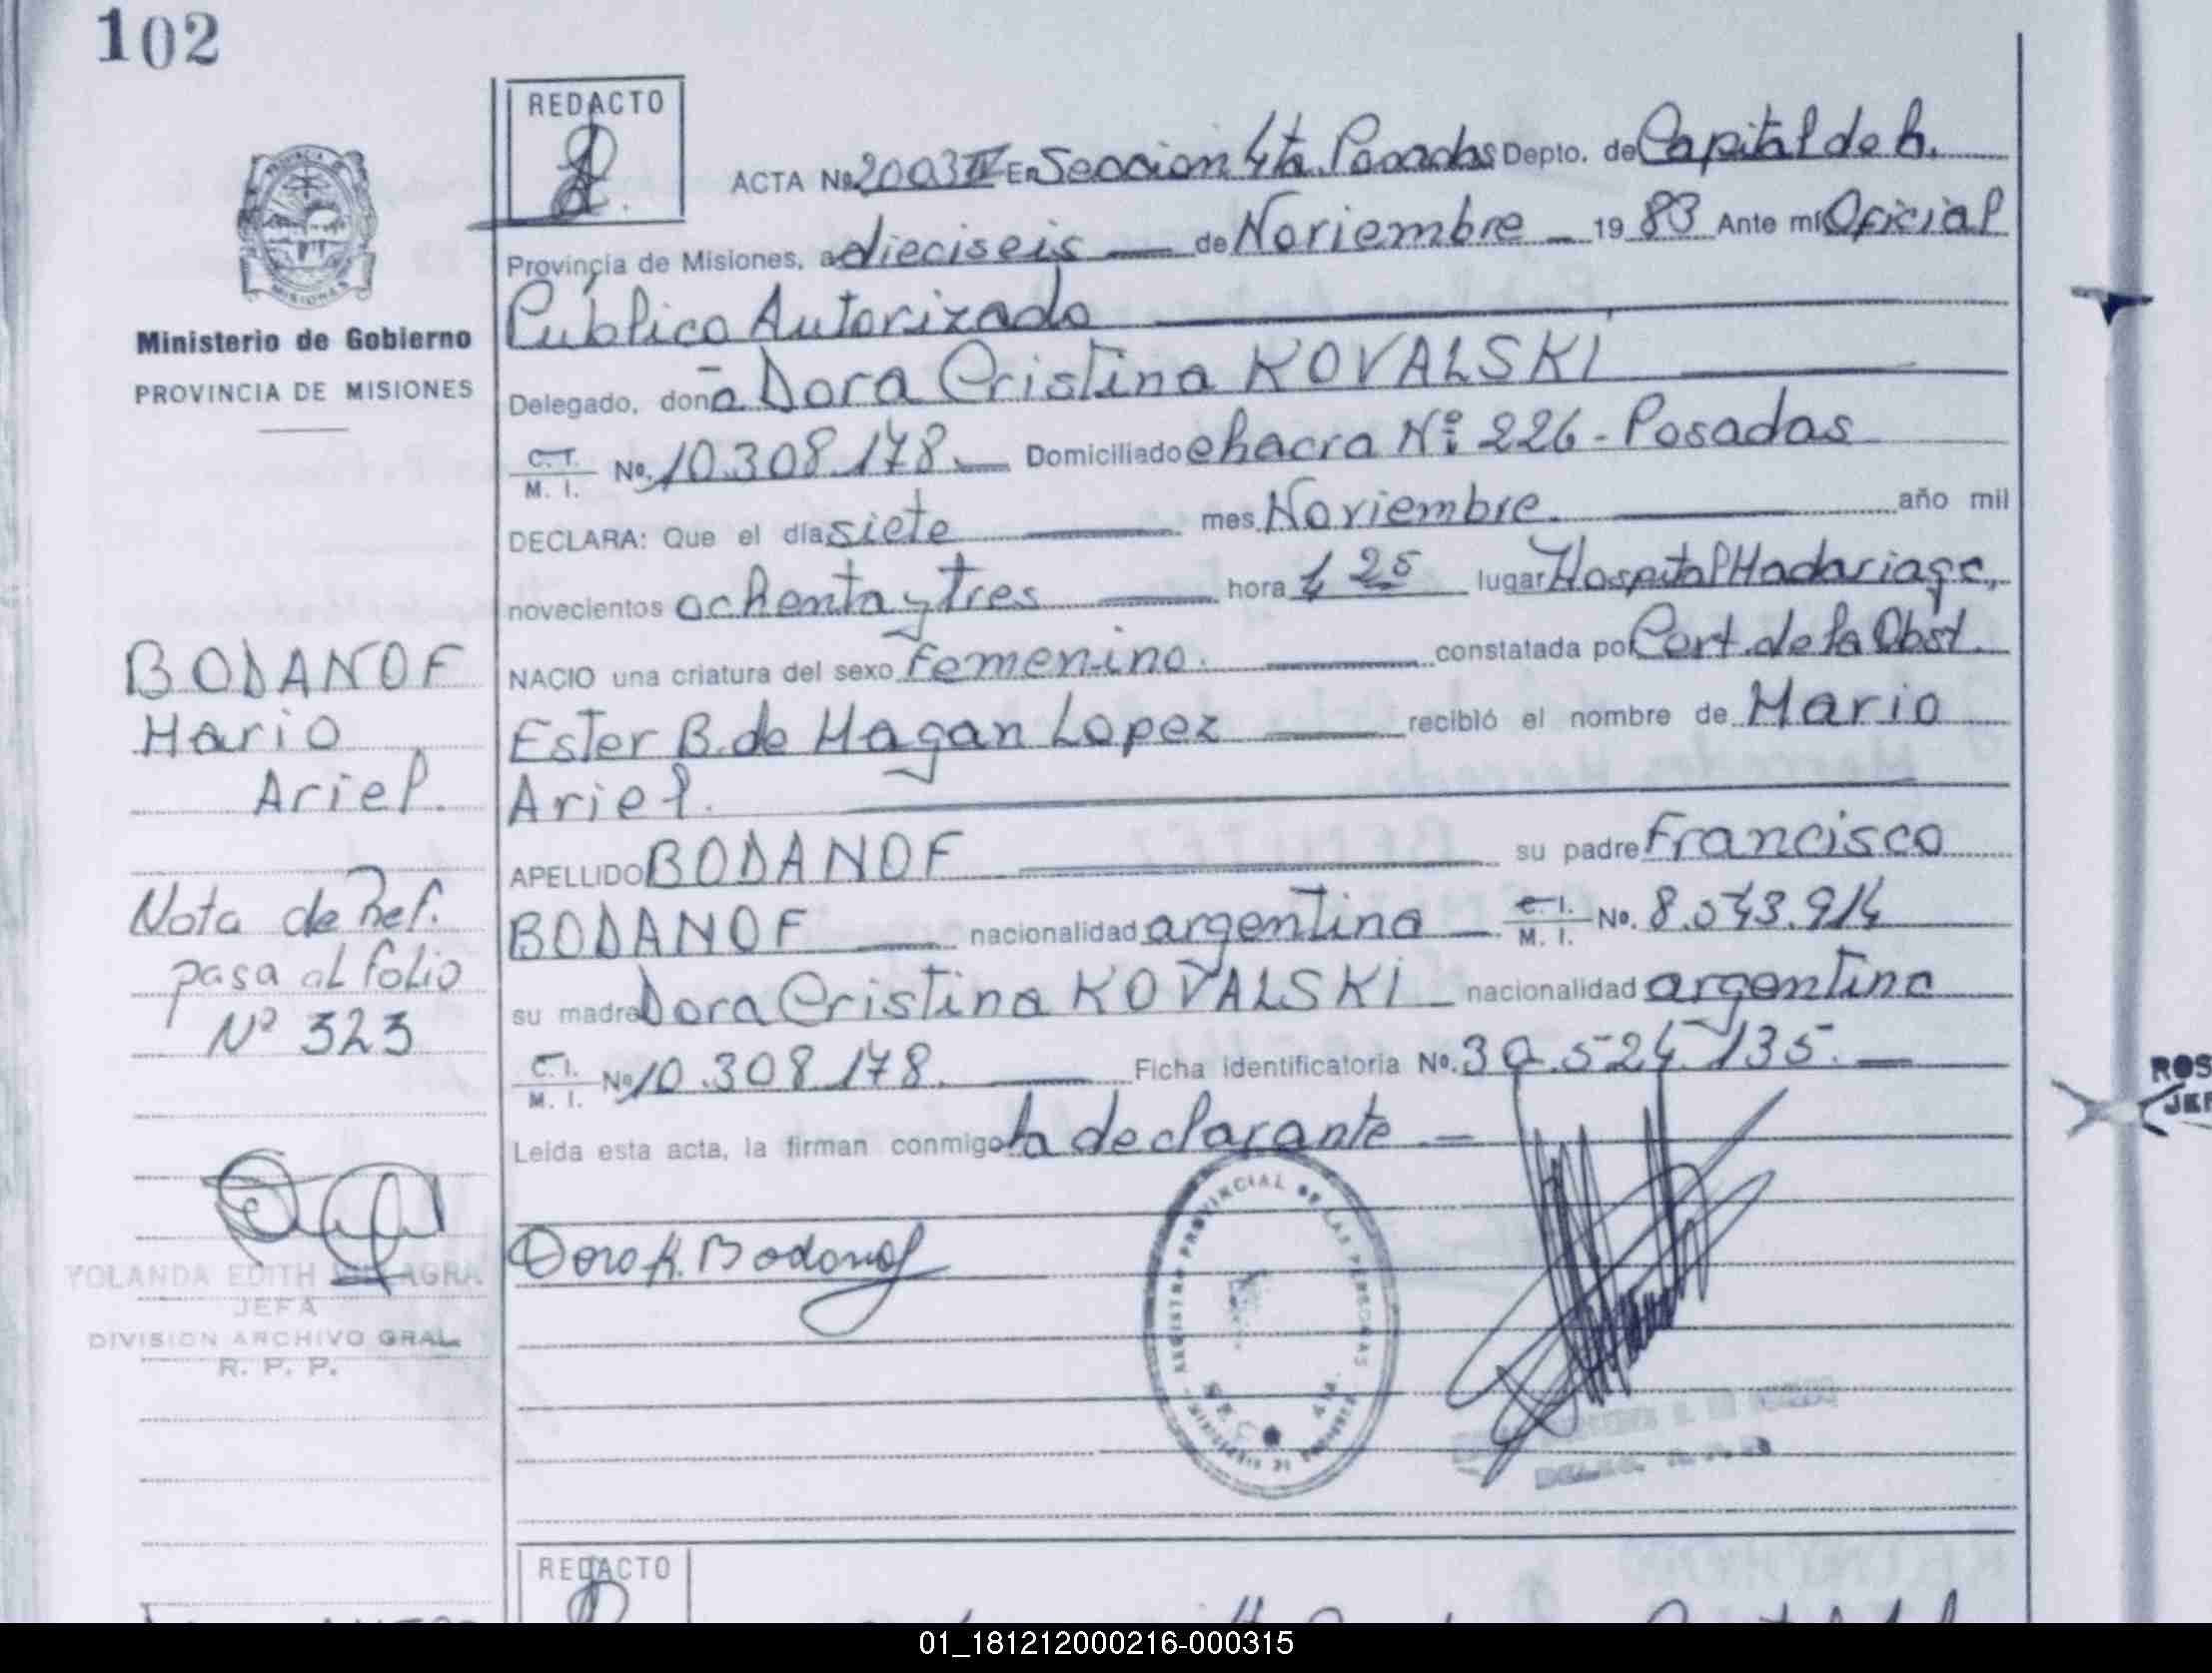 102
REDACTO
ACTA Nº 2003 IV En Seccion 4ta. Posadas Depto. de Capital de la.
Provincia de Misiones, a dieciseis de Noviembre 1983 Ante mí Oficial
Publico Autorizado
Delegado, doña Dora Cristina KOVALSKI
C.I. M. I. Nº. 10.308.178. Domiciliado chacra Nº: 226 - Posadas
DECLARA: Que el día siete mes Noviembre. año mil
novecientos ochenta y tres hora 4 25 lugar Hospital Madariaga,
NACIO una criatura del sexo Femenino. constatada por Cert. de la Obst.
Ester B. de Magan Lopez recibió el nombre de Mario
Ariel.
APELLIDO BODANOF su padre Francisco
BODANOF nacionalidad argentina C.I. M. I. Nº. 8.543.914
su madre Dora Cristina KOVALSKI nacionalidad argentina
C.I. M. I. Nº 10.308.178. Ficha identificatoria Nº. 30.524.135.
Leida esta acta, la firman conmigo la declarante
Dora K. Bodanof
PROVINCIA DE
MISIONES
Ministerio de Gobierno
PROVINCIA DE MISIONES
BODANOF
Mario
Ariel.
Nota de Ref.
pasa al folio
Nº 323
YOLANDA EDITH
JEFA
DIVISION ARCHIVO GRAL.
R. P. P.
REGISTRO PROVINCIAL DE LAS PERSONAS
REDACTO
ROS
JEF
01_181212000216-000315